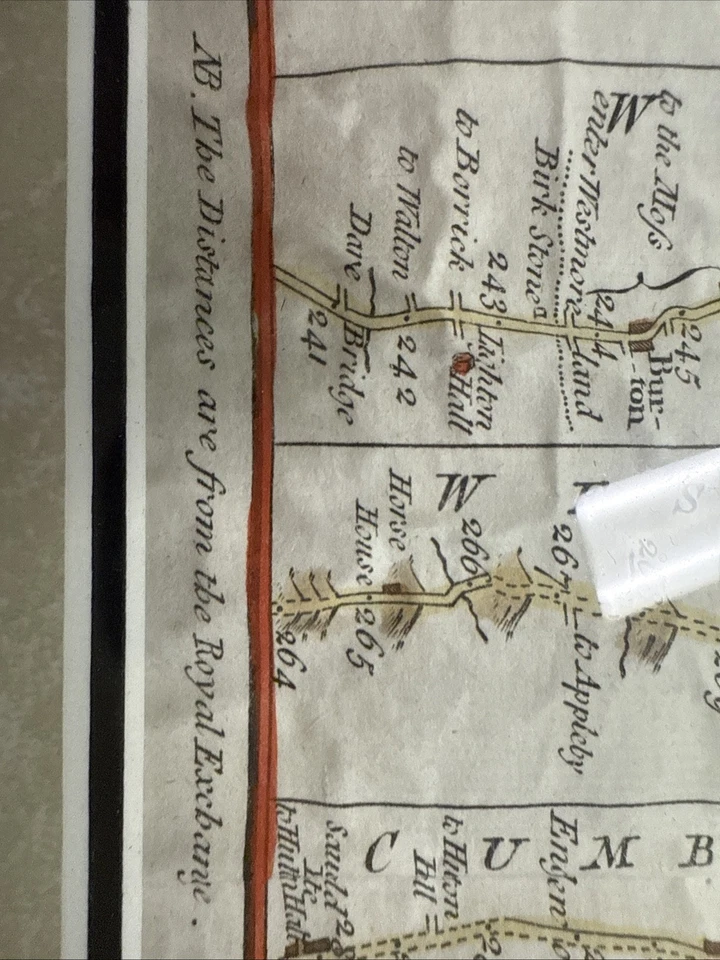 to the Moſs
W
245
Bur-
ton
244
enter Westmore land
Birk Stone
243
Lighton
Hall
to Borrick
to Walton
242
Dare Bridge
241
267
to Appleby
W
266
Horse
House
265
264
C U M B
to Huton
Hall
NB. The Distances are from the Royal Exchange.